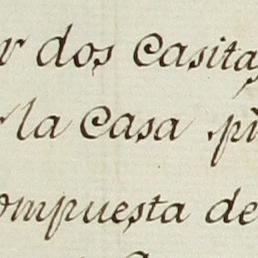 r dos casita
la casa pi
ompuesta de